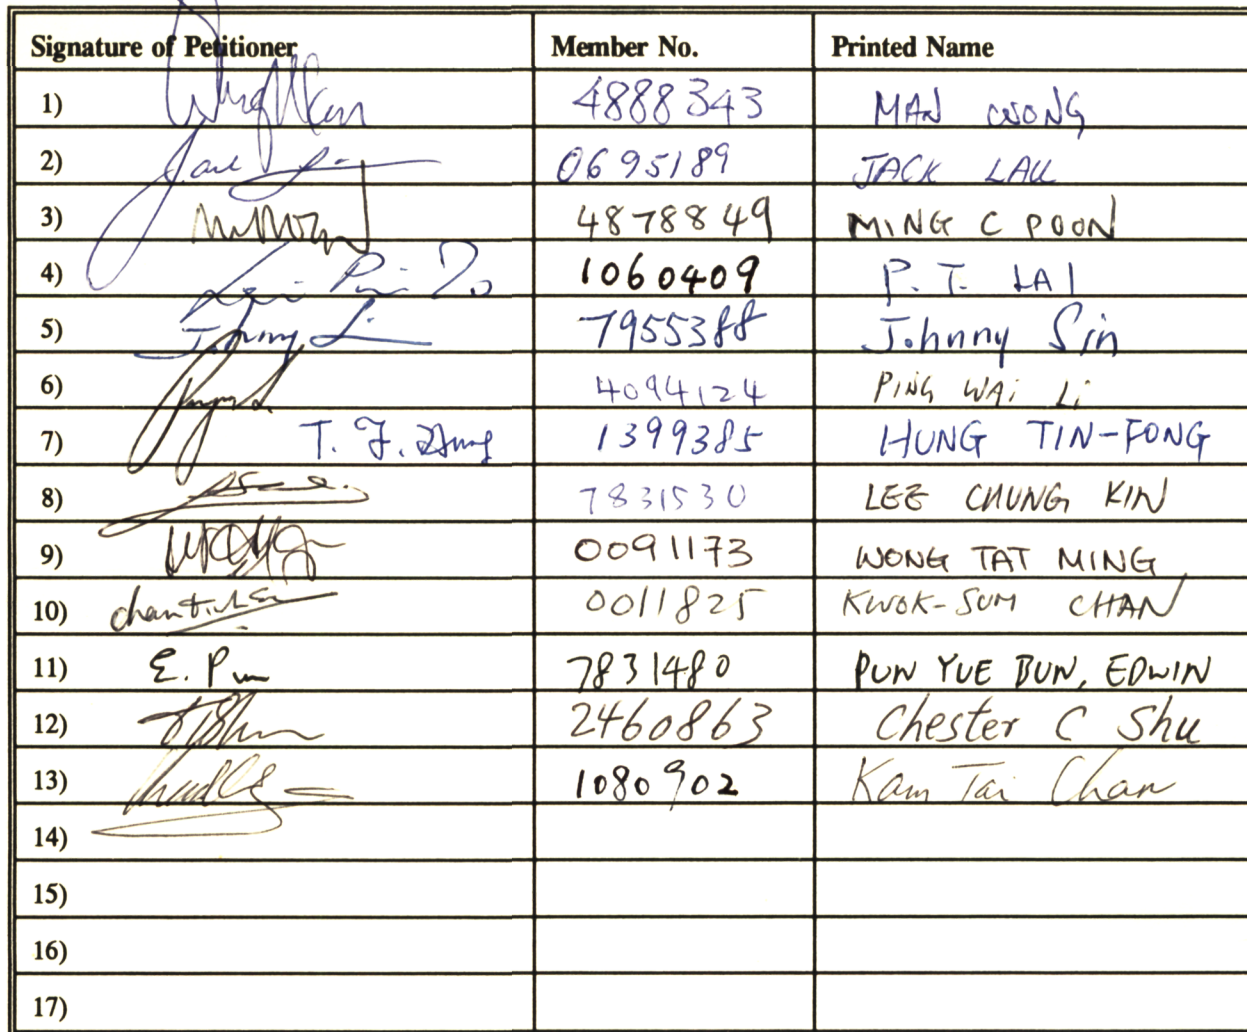 Signature of Petitioner Member No. Printed Name
1) 4888343 MAN WONG
2) 0695189 JACK LAU
3) 4878849 MING C POON
4) 1060409 P. T. LAI
5) Johnny 7955388 Johnny Sin
6) 4094124 PING WAI Li
7) T. F. Hung 1399385 HUNG TIN-FONG
8) 7831530 LEE CHUNG KIN
9) 0091173 WONG TAT MING
10) 0011825 KWOK-SUM CHAN
11) E. Pun 7831480 PUN YUE BUN, EDWIN
12) 2460863 Chester C Shu
13) 1080902 Kam Tai Chan
14)
15)
16)
17)